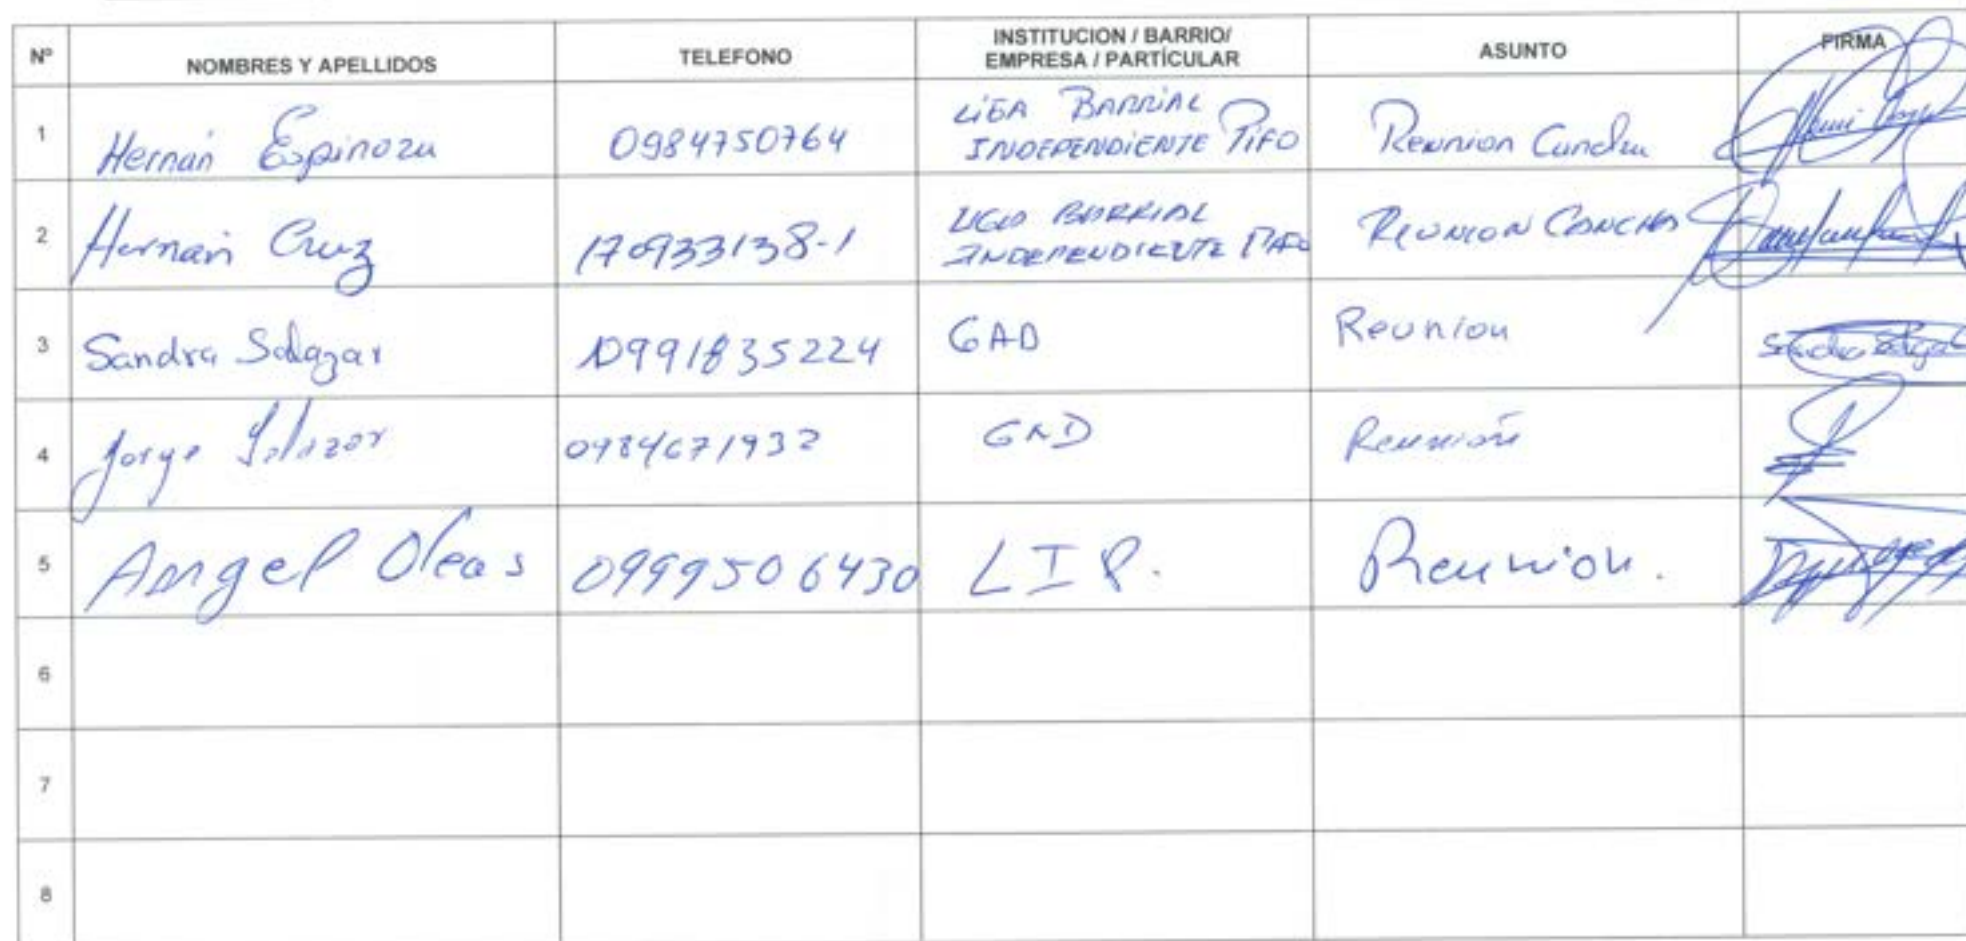 Nº NOMBRES Y APELLIDOS TELEFONO INSTITUCION / BARRIO/ EMPRESA / PARTÍCULAR ASUNTO FIRMA
1 Hernán Espinoza 0984750764 LIGA BARRIAL INDEPENDIENTE PIFO Reunion Cancha
2 Hernan Cruz 170933138-1 LIGA BARRIAL INDEPENDIENTE PIFO REUNION CANCHA
3 Sandra Salazar 0991835224 GAD Reunion
4 Jorge Salazar 0984671932 GAD Reunión
5 Angel Oleas 0999506430 LIP. Reunion.
6
7
8